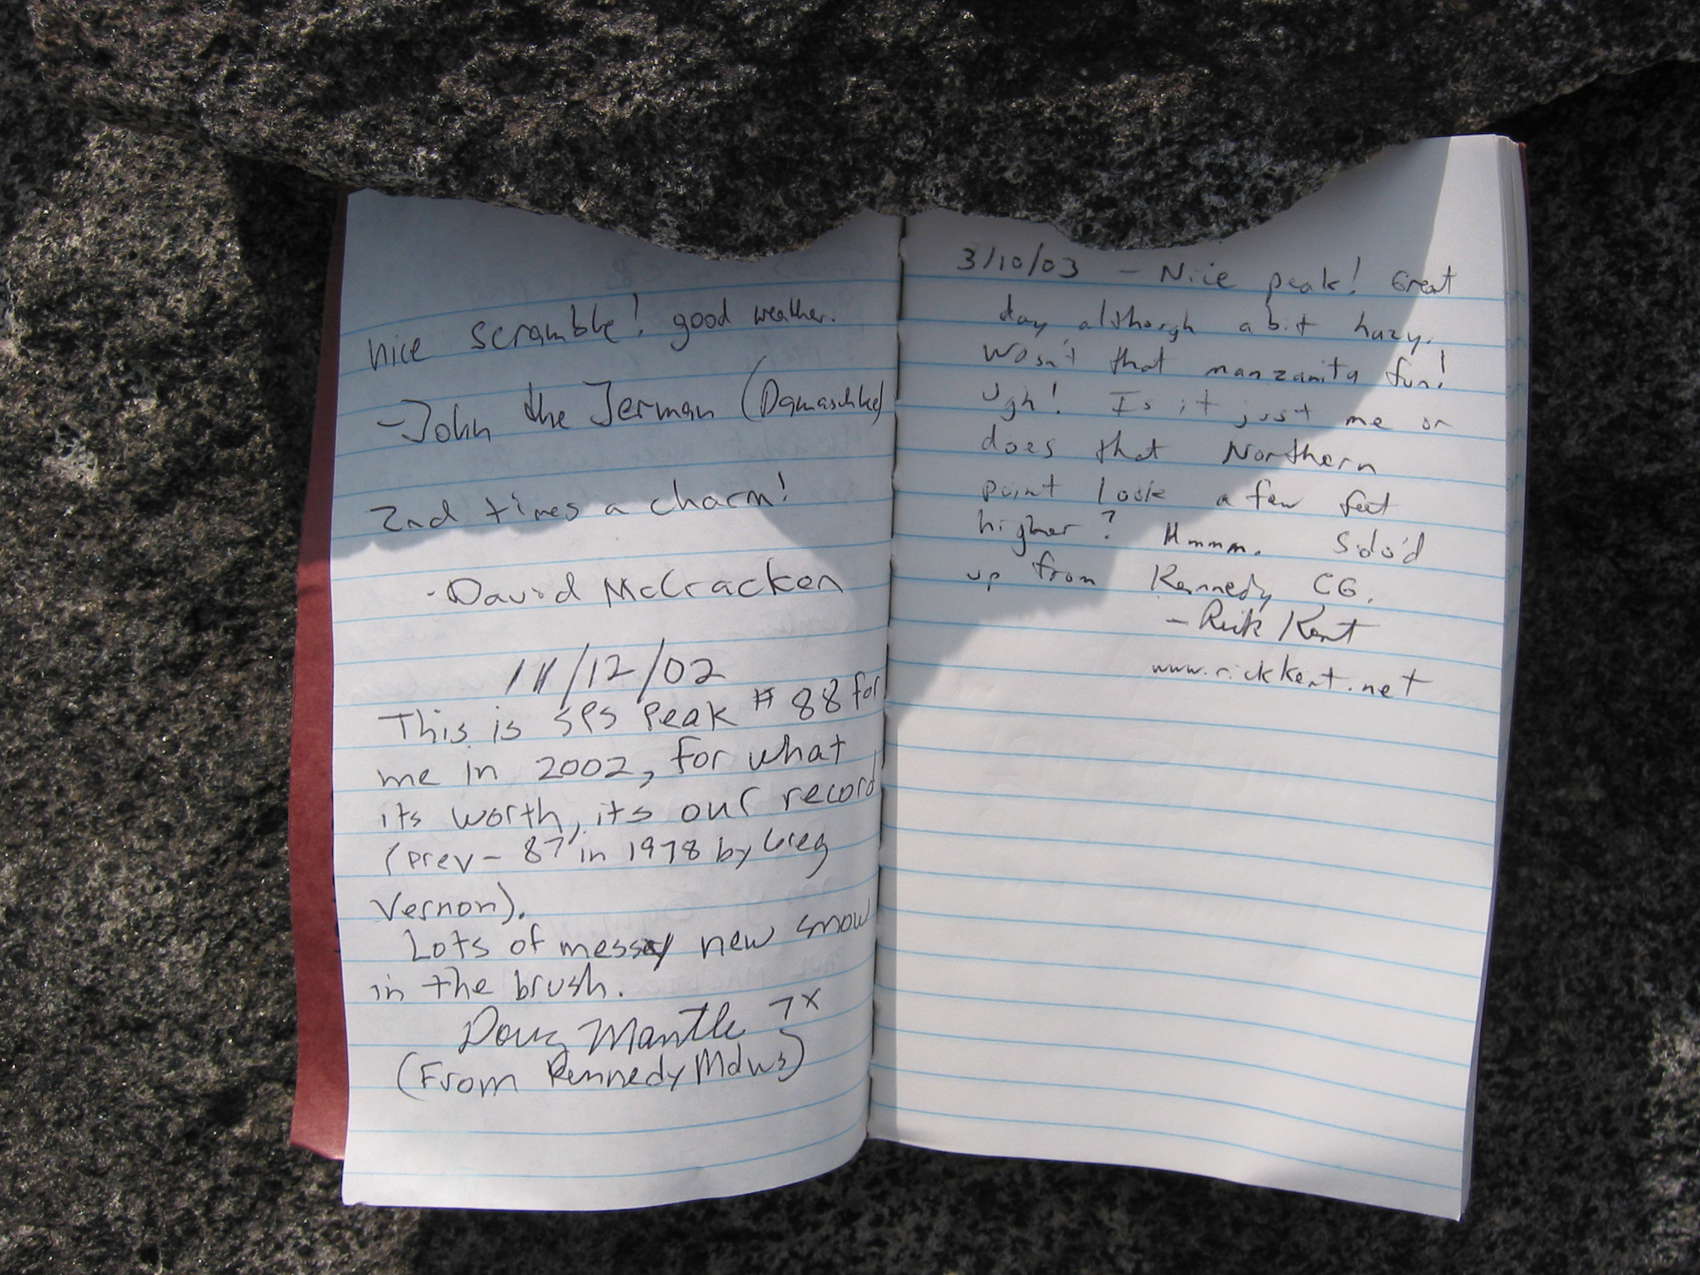 nice scramble! good weather.
-John the Jerman (Damaschke)
2nd times a charm!
-David McCracken
11/12/02
This is SPS Peak # 88 for
me in 2002, for what
its worth, its our record!
(prev - 87 in 1978 by Greg
Vernon).
Lots of messy new snow
in the brush.
Doug Mantle 7x
(From Kennedy Mdws)
3/10/03 - Nice peak! Great
day although a bit hazy.
Wasn't that manzanita fun!
Ugh! Is it just me or
does that Northern
point look a few feet
higher? Hmmm. Solo'd
up from Kennedy CG.
- Rick Kent
www.rickkent.net